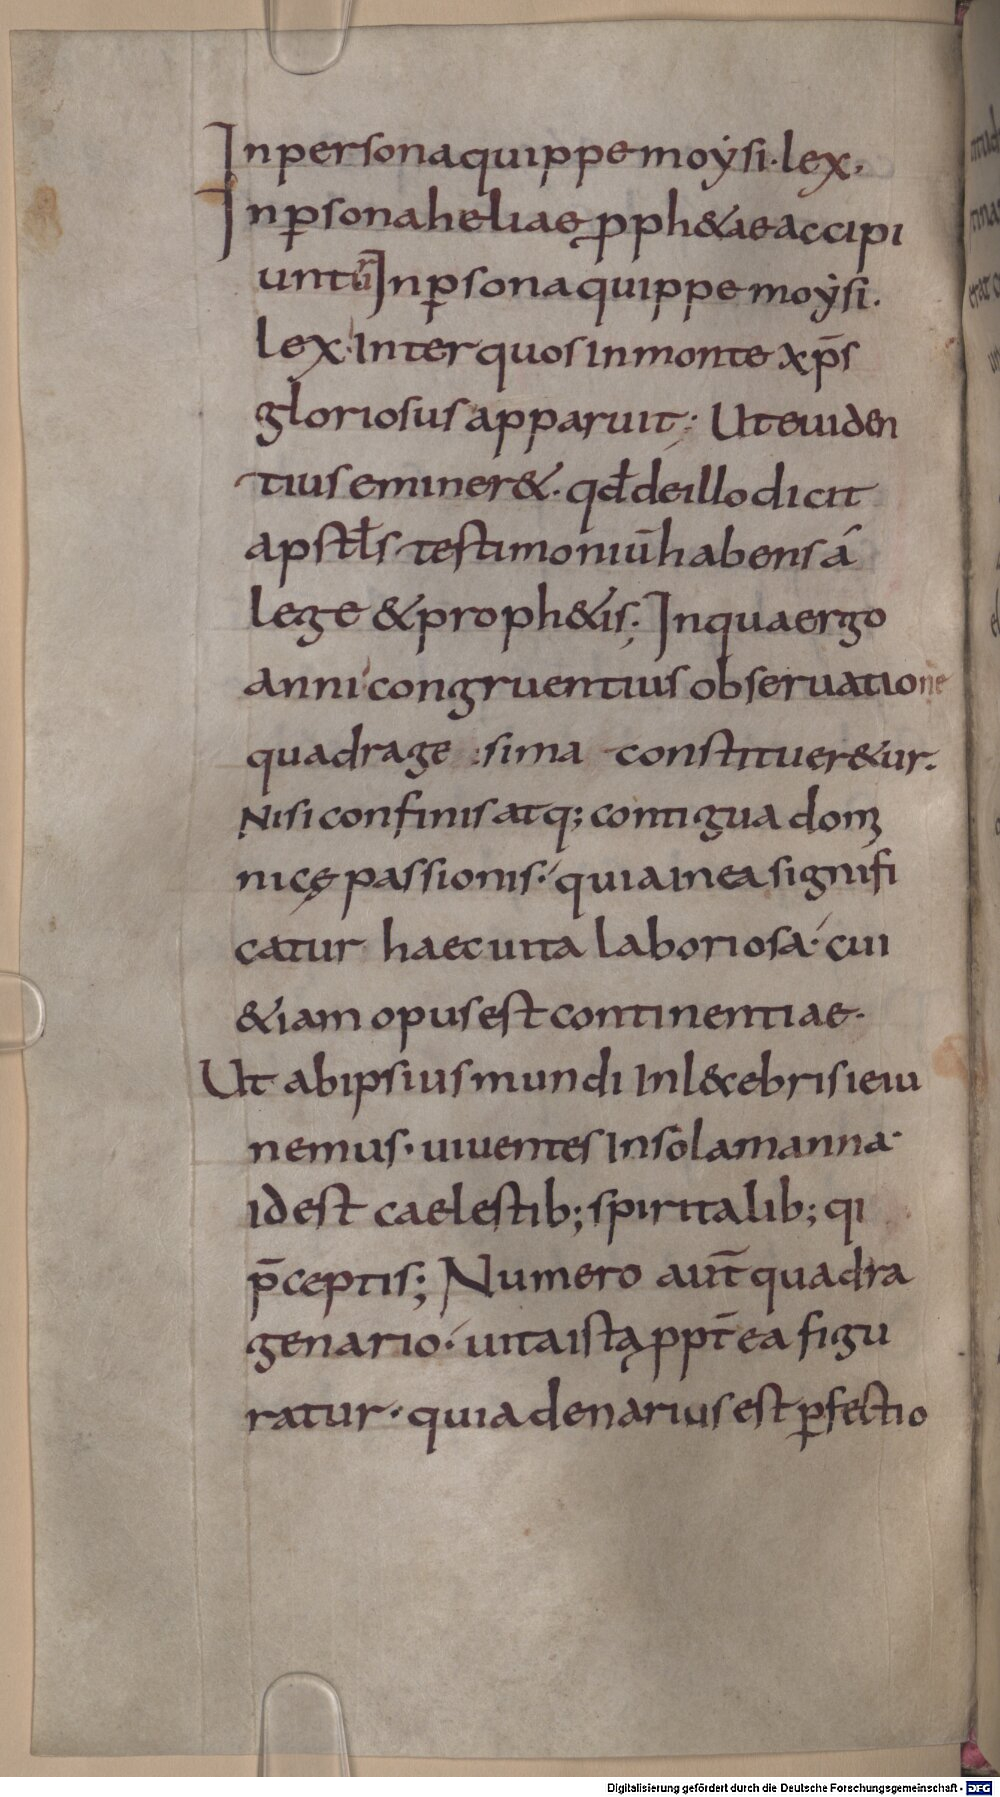 In persona quippe moẏsi · lex,
In ꝑsona heliae ꝓph&ae accipi
untur In ꝑsona quippe moẏsi.
lex· Inter quos In monte xp̄s
gloriosus apparuit; Ut euiden
tius eminer&· qđ de illo dicit
apstƚs testimoniū habens á
lege & proph&is; In qua ergo
anni congruentius obseruatione
quadrage sima constituer&ur.
Nisi confinis atq; contigua domi
nicę passionis· quia in ea signifi
catur haec uita laboriosa· cui
&iam opus est continentiae·
Ut ab ipsius mundi Inl&cebris ieiu
nemus· uiuentes In sola manna·
id est caelestib; spiritalib; qi
p̄ceptis; Numero aut̄ quadra
genario· uita ista ꝓpt̄ea figu
ratur· quia denarius est ꝑfectio
Digitalisierung gefördert durch die Deutsche Forschungsgemeinschaft - DFG